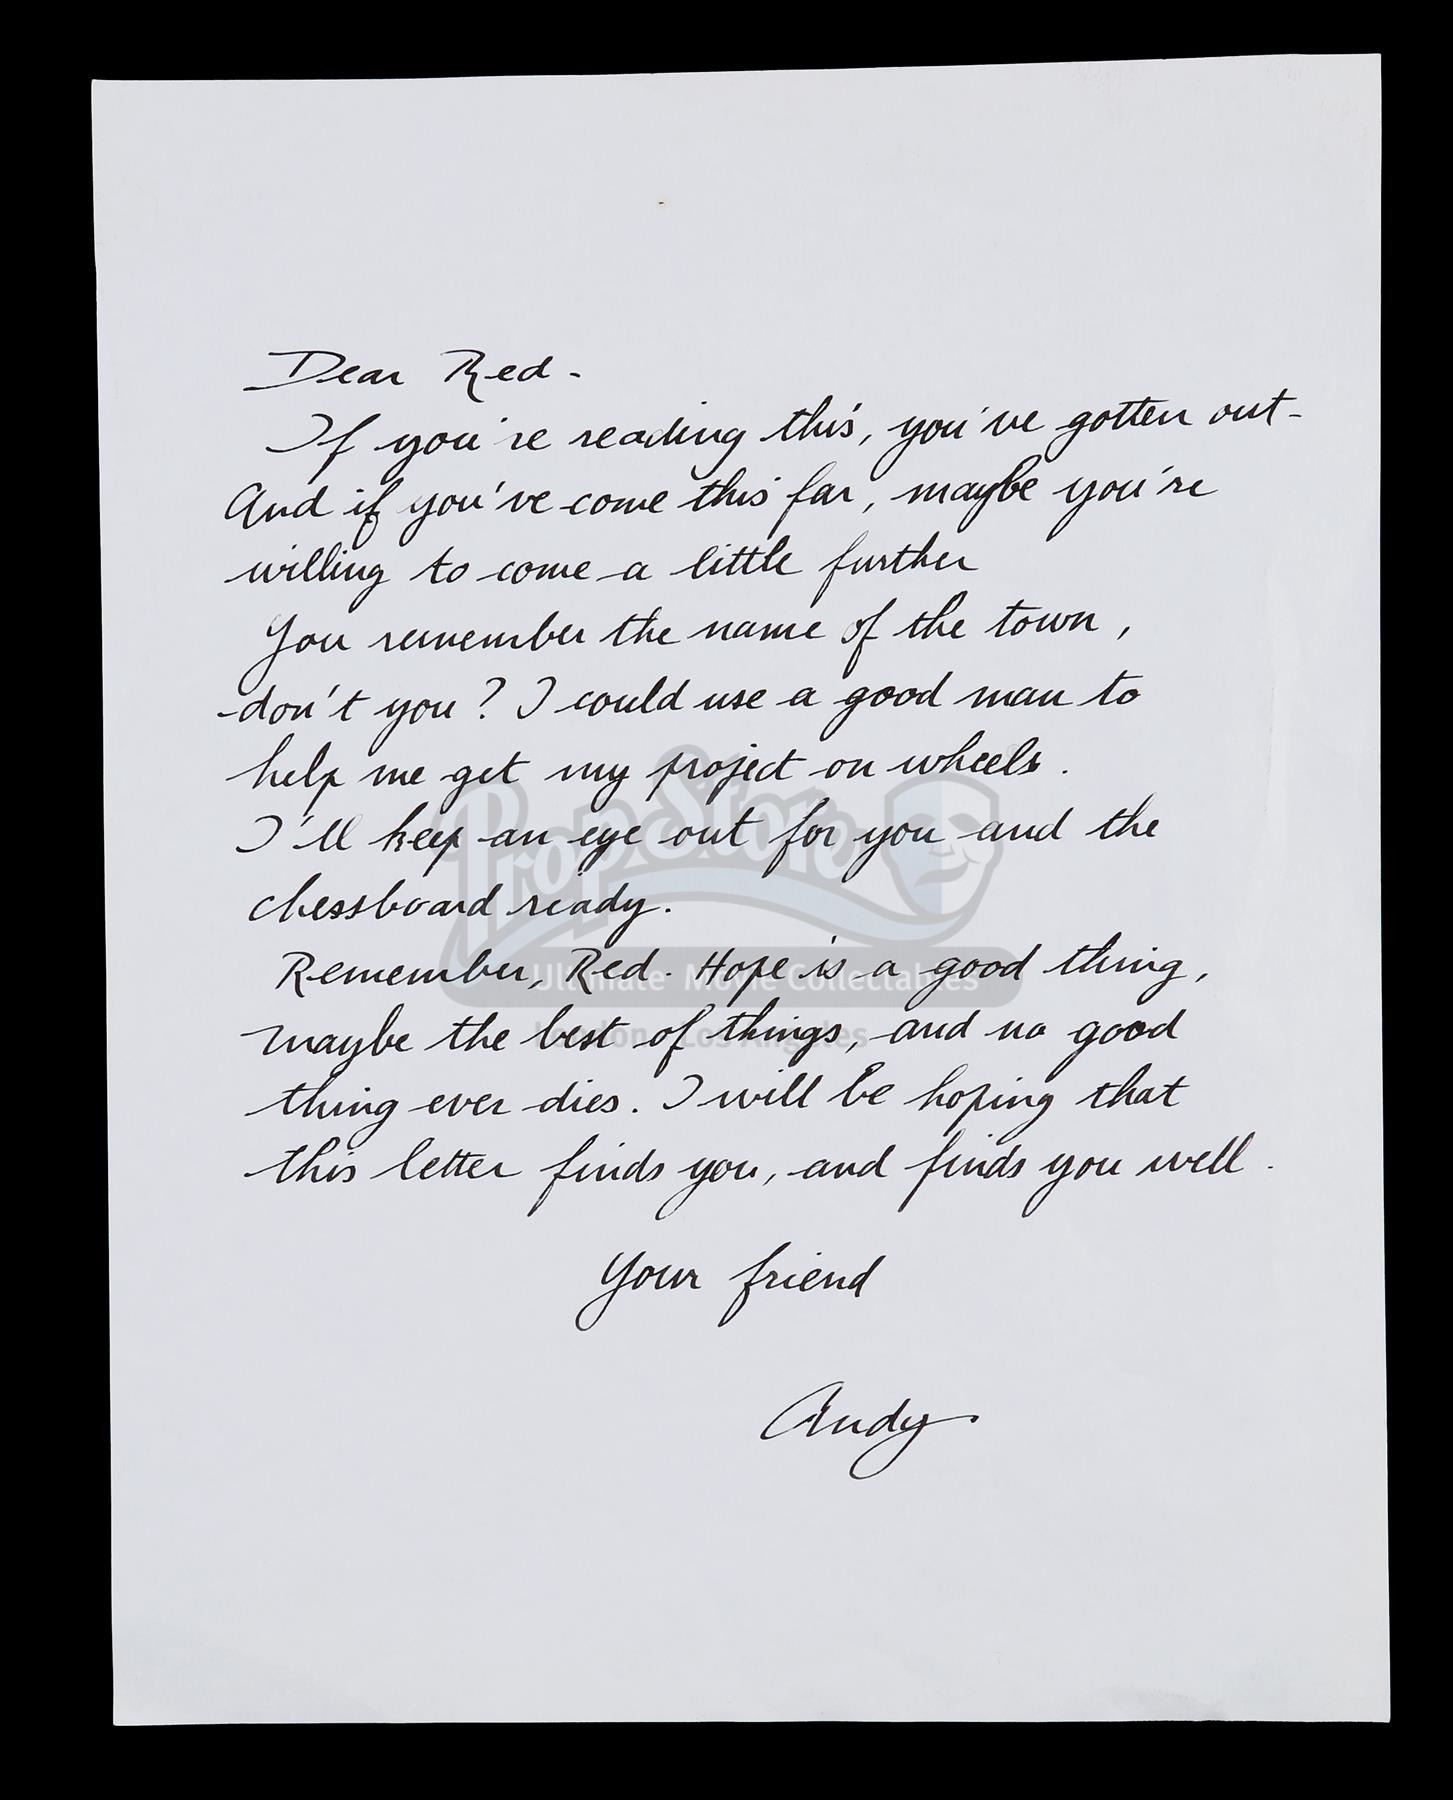 Dear Red -
If you're reading this, you've gotten out -
And if you've come this far, maybe you're
willing to come a little further
You remember the name of the town,
don't you? I could use a good man to
help me get my project on wheels.
I'll keep an eye out for you and the
chessboard ready.
Remember, Red. Hope is a good thing,
maybe the best of things, and no good
thing ever dies. I will be hoping that
this letter finds you, and finds you well.
Your friend
Andy
Prop Store
Ultimate Movie Collectables
London Los Angeles